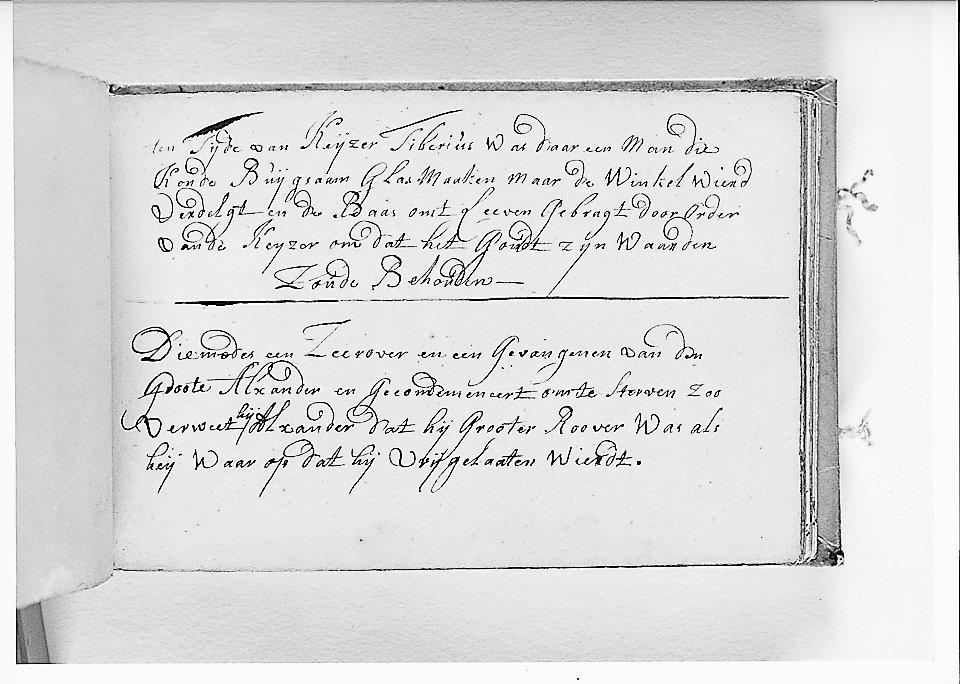 ten Tyde van Keyzer Tiberius Was daar een Man die
Konde Buygsaam Glas Maaken maar de Winkel Wierd
Verdelgt en de Baas omt Leeven Gebragt door Order
vande Keyzer om dat het Goudt zyn Waarden
Zoude Behouden —
Diemedes een Zeerover en een Gevangenen van den
Groote Alxander en Gecondemeneert omte sterven Zoo
Verweet hij Alxander dat hij Grooter Roover Was als
heij Waar op dat hij Vrijgelaaten Wierdt.